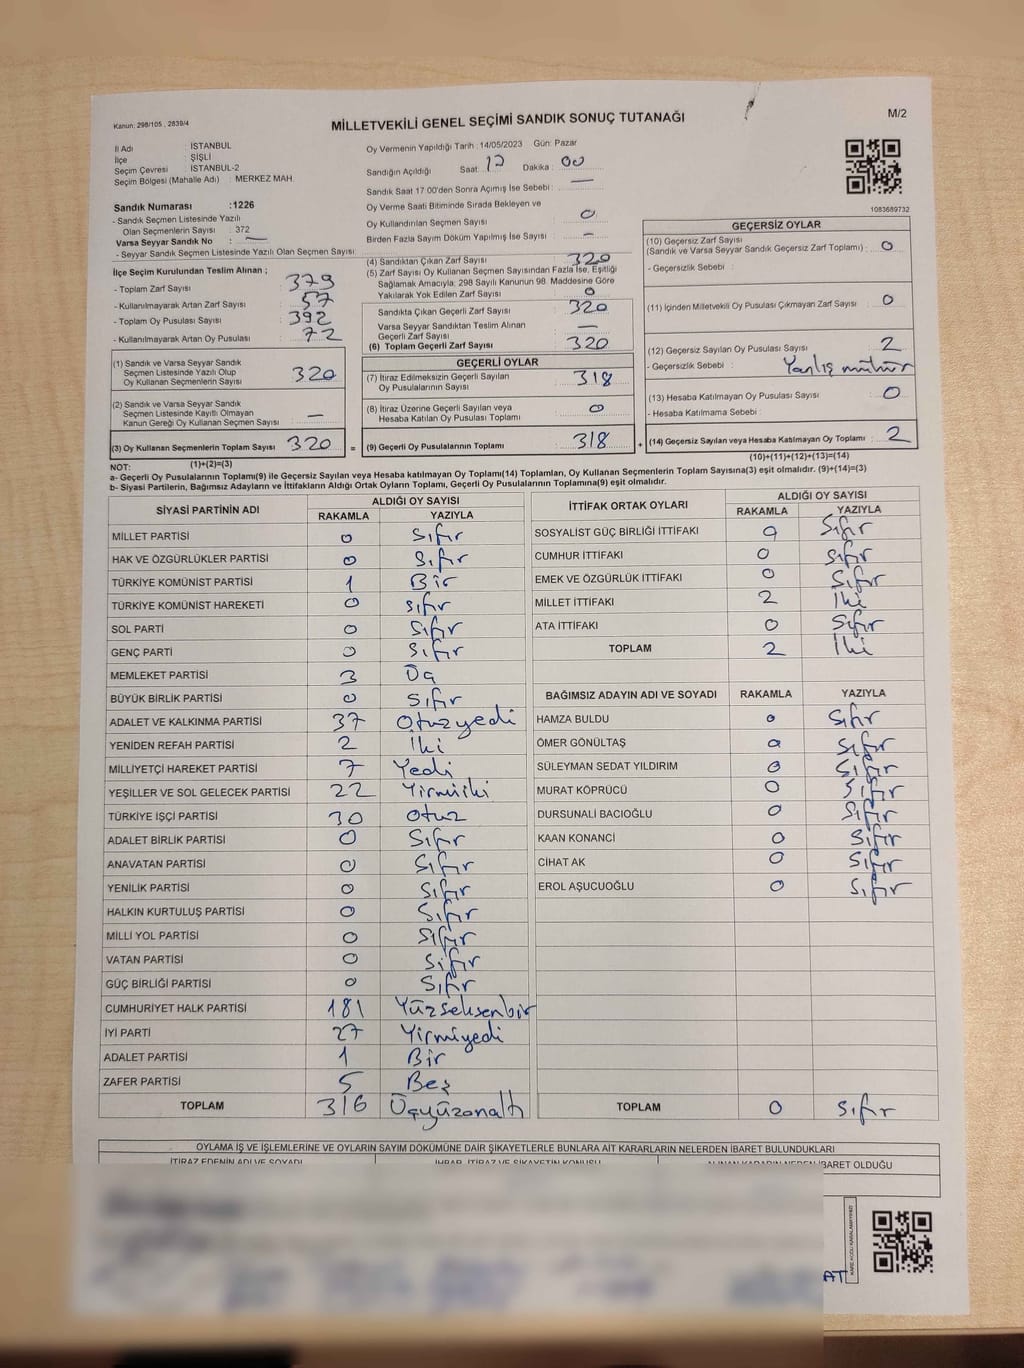 Kanun: 298/105 , 2839/4
MİLLETVEKİLİ GENEL SEÇİMİ SANDIK SONUÇ TUTANAĞI
M/2
İl Adı : İSTANBUL
İlçe : ŞİŞLİ
Seçim Çevresi : İSTANBUL-2
Seçim Bölgesi (Mahalle Adı) : MERKEZ MAH.
Sandık Numarası :1226
- Sandık Seçmen Listesinde Yazılı
Olan Seçmenlerin Sayısı : 372
Varsa Seyyar Sandık No : —
- Seyyar Sandık Seçmen Listesinde Yazılı Olan Seçmen Sayısı:
İlçe Seçim Kurulundan Teslim Alınan ;
- Toplam Zarf Sayısı : 379
- Kullanılmayarak Artan Zarf Sayısı : 57
- Toplam Oy Pusulası Sayısı : 392
- Kullanılmayarak Artan Oy Pusulası : 72
(1) Sandık ve Varsa Seyyar Sandık
Seçmen Listesinde Yazılı Olup
Oy Kullanan Seçmenlerin Sayısı : 320
(2) Sandık ve Varsa Seyyar Sandık
Seçmen Listesinde Kayıtlı Olmayan
Kanun Gereği Oy Kullanan Seçmen Sayısı : —
(3) Oy Kullanan Seçmenlerin Toplam Sayısı : 320
(1)+(2)=(3)
Oy Vermenin Yapıldığı Tarih : 14/05/2023 Gün: Pazar
Sandığın Açıldığı Saat: 17 Dakika : 00
Sandık Saat 17:00'den Sonra Açımış İse Sebebi : —
Oy Verme Saati Bitiminde Sırada Bekleyen ve
Oy Kullandırılan Seçmen Sayısı : 0
Birden Fazla Sayım Döküm Yapılmış İse Sayısı : —
(4) Sandıktan Çıkan Zarf Sayısı : 320
(5) Zarf Sayısı Oy Kullanan Seçmen Sayısından Fazla İse, Eşitliği
Sağlamak Amacıyla; 298 Sayılı Kanunun 98. Maddesine Göre
Yakılarak Yok Edilen Zarf Sayısı : 0
Sandıkta Çıkan Geçerli Zarf Sayısı : 320
Varsa Seyyar Sandıktan Teslim Alınan
Geçerli Zarf Sayısı : —
(6) Toplam Geçerli Zarf Sayısı : 320
GEÇERLİ OYLAR
(7) İtiraz Edilmeksizin Geçerli Sayılan
Oy Pusulalarının Sayısı : 318
(8) İtiraz Üzerine Geçerli Sayılan veya
Hesaba Katılan Oy Pusulası Toplamı : 0
= (9) Geçerli Oy Pusulalarının Toplamı : 318 +
1083689732
GEÇERSİZ OYLAR
(10) Geçersiz Zarf Sayısı
(Sandık ve Varsa Seyyar Sandık Geçersiz Zarf Toplamı) : 0
- Geçersizlik Sebebi :
(11) İçinden Milletvekili Oy Pusulası Çıkmayan Zarf Sayısı : 0
(12) Geçersiz Sayılan Oy Pusulası Sayısı : 2
- Geçersizlik Sebebi : Yanlış mühür
(13) Hesaba Katılmayan Oy Pusulası Sayısı : 0
- Hesaba Katılmama Sebebi :
(14) Geçersiz Sayılan veya Hesaba Katılmayan Oy Toplamı : 2
(10)+(11)+(12)+(13)=(14)
NOT:
a- Geçerli Oy Pusulalarının Toplamı(9) ile Geçersiz Sayılan veya Hesaba katılmayan Oy Toplamı(14) Toplamları, Oy Kullanan Seçmenlerin Toplam Sayısına(3) eşit olmalıdır. (9)+(14)=(3)
b- Siyasi Partilerin, Bağımsız Adayların ve İttifakların Aldığı Ortak Oyların Toplamı, Geçerli Oy Pusulalarının Toplamına(9) eşit olmalıdır.
SİYASİ PARTİNİN ADI ALDIĞI OY SAYISI
RAKAMLA YAZIYLA
MİLLET PARTİSİ 0 Sıfır
HAK VE ÖZGÜRLÜKLER PARTİSİ 0 Sıfır
TÜRKİYE KOMÜNİST PARTİSİ 1 Bir
TÜRKİYE KOMÜNİST HAREKETİ 0 sıfır
SOL PARTİ 0 Sıfır
GENÇ PARTİ 0 Sıfır
MEMLEKET PARTİSİ 3 Üç
BÜYÜK BİRLİK PARTİSİ 0 Sıfır
ADALET VE KALKINMA PARTİSİ 37 Otuzyedi
YENİDEN REFAH PARTİSİ 2 İki
MİLLİYETÇİ HAREKET PARTİSİ 7 Yedi
YEŞİLLER VE SOL GELECEK PARTİSİ 22 Yirmiiki
TÜRKİYE İŞÇİ PARTİSİ 30 Otuz
ADALET BİRLİK PARTİSİ 0 Sıfır
ANAVATAN PARTİSİ 0 Sıfır
YENİLİK PARTİSİ 0 Sıfır
HALKIN KURTULUŞ PARTİSİ 0 Sıfır
MİLLİ YOL PARTİSİ 0 Sıfır
VATAN PARTİSİ 0 Sıfır
GÜÇ BİRLİĞİ PARTİSİ 0 Sıfır
CUMHURİYET HALK PARTİSİ 181 Yüzseksenbir
İYİ PARTİ 27 Yirmiyedi
ADALET PARTİSİ 1 Bir
ZAFER PARTİSİ 5 Beş
TOPLAM 316 Üçyüzonaltı
İTTİFAK ORTAK OYLARI ALDIĞI OY SAYISI
RAKAMLA YAZIYLA
SOSYALİST GÜÇ BİRLİĞİ İTTİFAKI 0 Sıfır
CUMHUR İTTİFAKI 0 sıfır
EMEK VE ÖZGÜRLÜK İTTİFAKI 0 Sıfır
MİLLET İTTİFAKI 2 İki
ATA İTTİFAKI 0 Sıfır
TOPLAM 2 İki
BAĞIMSIZ ADAYIN ADI VE SOYADI RAKAMLA YAZIYLA
HAMZA BULDU 0 Sıfır
ÖMER GÖNÜLTAŞ 0 Sıfır
SÜLEYMAN SEDAT YILDIRIM 0 Sıfır
MURAT KÖPRÜCÜ 0 Sıfır
DURSUNALİ BACIOĞLU 0 Sıfır
KAAN KONANCİ 0 Sıfır
CİHAT AK 0 Sıfır
EROL AŞUCUOĞLU 0 Sıfır
TOPLAM 0 sıfır
OYLAMA İŞ VE İŞLEMLERİNE VE OYLARIN SAYIM DÖKÜMÜNE DAİR ŞİKAYETLERLE BUNLARA AİT KARARLARIN NELERDEN İBARET BULUNDUKLARI
İTİRAZ EDENİN ADI VE SOYADI İHBAR, İTİRAZ VE ŞİKAYETİN KONUSU ALINAN KARARIN NEDEN İBARET OLDUĞU
AT
KARE KODU KARALAMAYINIZ!